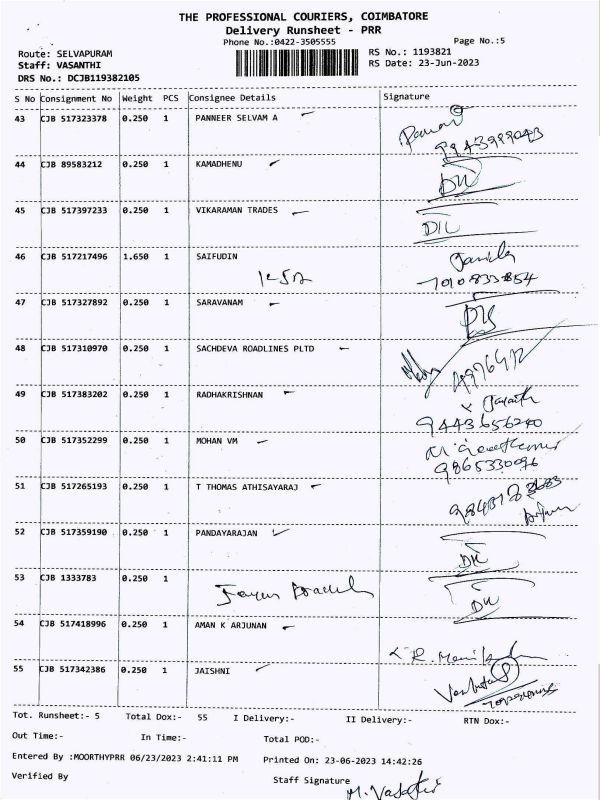 THE PROFESSIONAL COURIERS, COIMBATORE
Delivery Runsheet - PRR
Phone No.:0422-3505555
Page No.:5
Route: SELVAPURAM
RS No.: 1193821
Staff: VASANTHI
RS Date: 23-Jun-2023
DRS No.: DCJB119382105
S No Consignment No Weight PCS Consignee Details Signature
43 CJB 517323378 0.250 1 PANNEER SELVAM A
44 CJB 89583212 0.250 1 KAMADHENU
45 CJB 517397233 0.250 1 VIKARAMAN TRADES
46 CJB 517217496 1.650 1 SAIFUDIN
47 CJB 517327892 0.250 1 SARAVANAM
48 CJB 517310970 0.250 1 SACHDEVA ROADLINES PLTD
49 CJB 517383202 0.250 1 RADHAKRISHNAN
9443656240
50 CJB 517352299 0.250 1 MOHAN VM
9865330096
51 CJB 517265193 0.250 1 T THOMAS ATHISAYARAJ
52 CJB 517359190 0.250 1 PANDAYARAJAN
53 CJB 1333783 0.250 1
54 CJB 517418996 0.250 1 AMAN K ARJUNAN
55 CJB 517342386 0.250 1 JAISHNI
Tot. Runsheet:- 5 Total Dox:- 55 I Delivery:- II Delivery:- RTN Dox:-
Out Time:- In Time:- Total POD:-
Entered By :MOORTHYPRR 06/23/2023 2:41:11 PM Printed On: 23-06-2023 14:42:26
Verified By Staff Signature